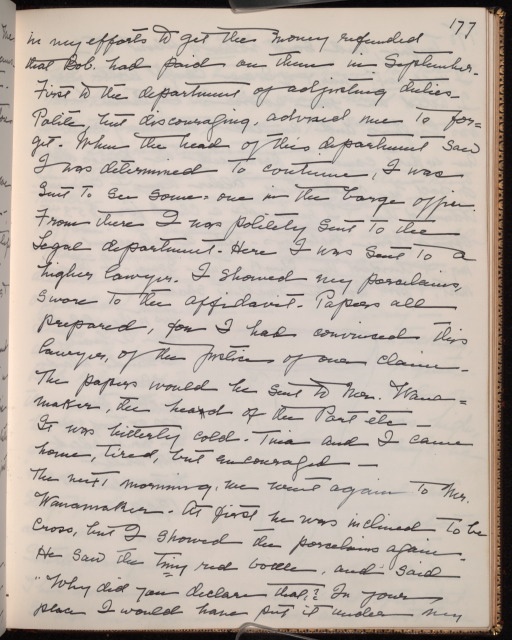 177
in my efforts to get the money refunded
that Bob. had paid on them in September.
First to the department of adjusting duties
Polite but discouraging, advised me to for=
get. When the head of this department saw
I was determined to continue, I was
sent to see some-one in the barge office.
From there I was politely sent to the
Legal department. Here I was sent to a
higher lawyer. I showed my porcelains,
swore to the affidavit. Papers all
prepared, for I had convinced this
lawyer, of the justice of our claim-
The papers would be sent to Mr. Wana=
maker, the head of the Port etc-
It was bitterly cold. Tina and I came
home, tired, but encouraged-
The next morning, we went again to Mr.
Wanamaker. At first he was inclined to be
cross, but I showed the porcelains again.
He saw the tiny red bottle, and said
"Why did you declare that? In your
place I would have put it under my